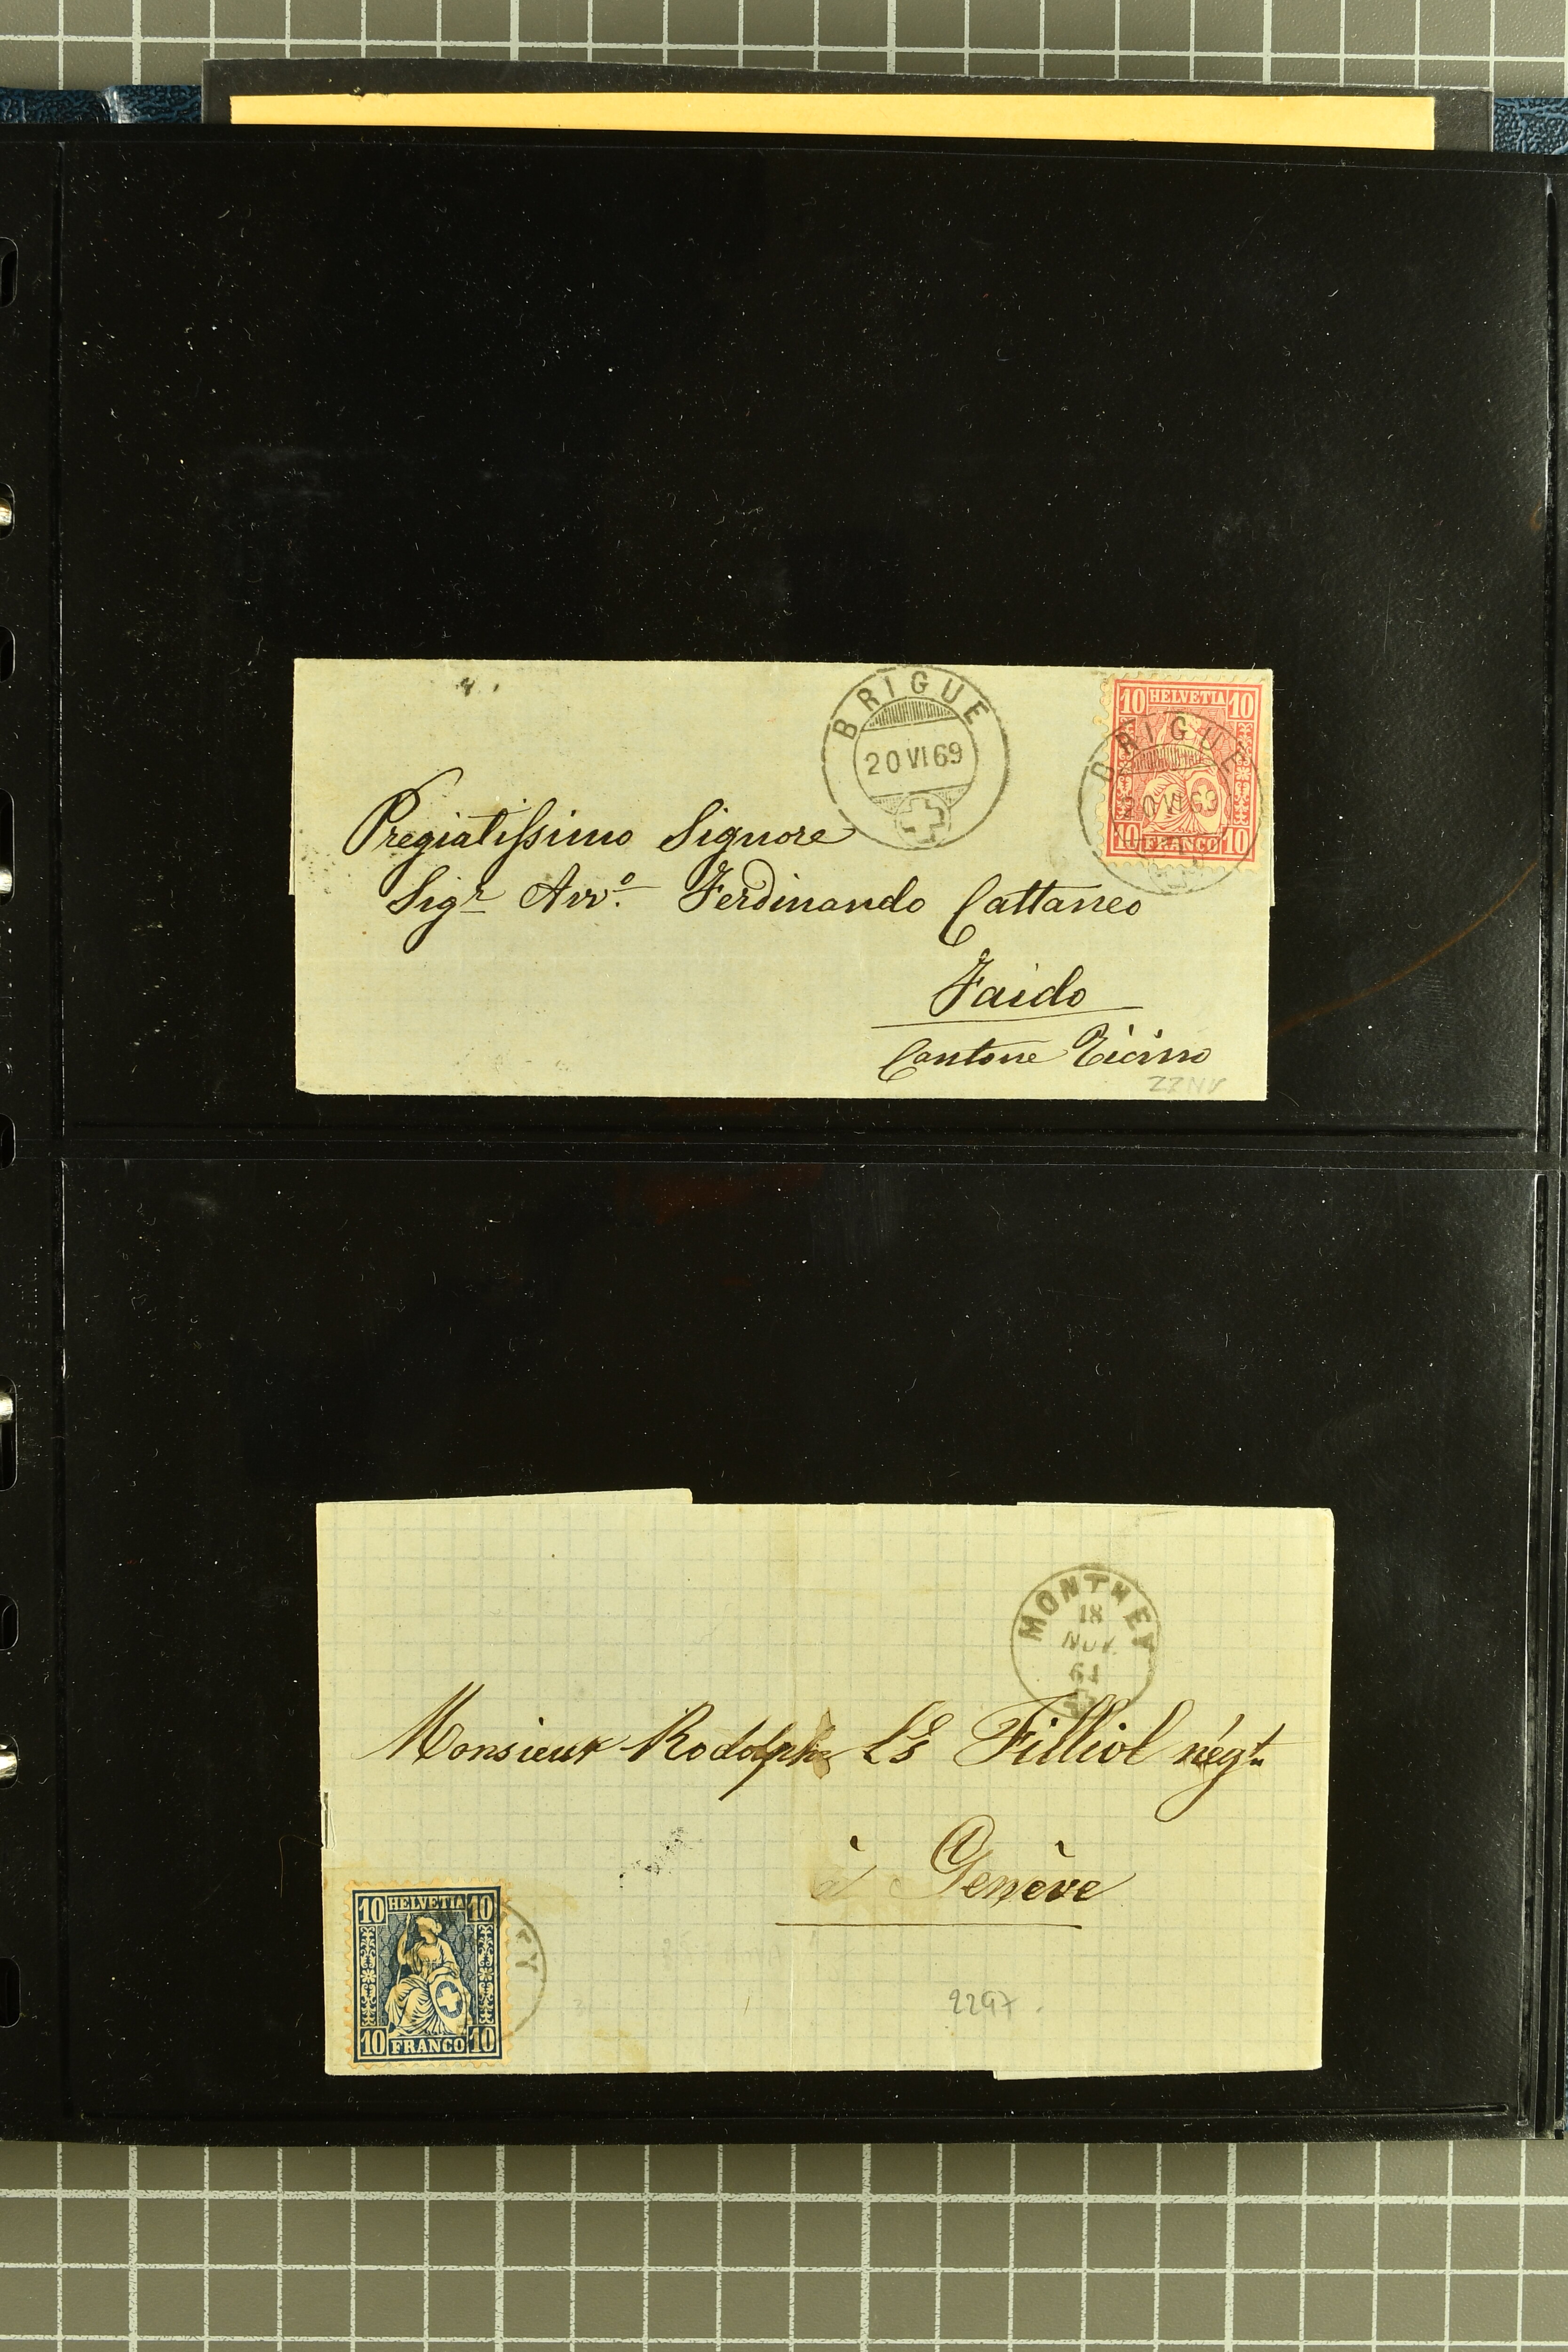 BRIGUE
20 VI 69
10 HELVETIA 10
BRIGUE
20 VI 69
10 FRANCO 10
Pregiatissimo Signore
Sigr Avvo. Ferdinando Cattaneo
Faido
Cantone Ticino
MONTHEY
18
NOV
64
Monsieur Rodolphe Ls Filliol négt
à Genève
10 HELVETIA 10
EY
10 FRANCO 10
2297.